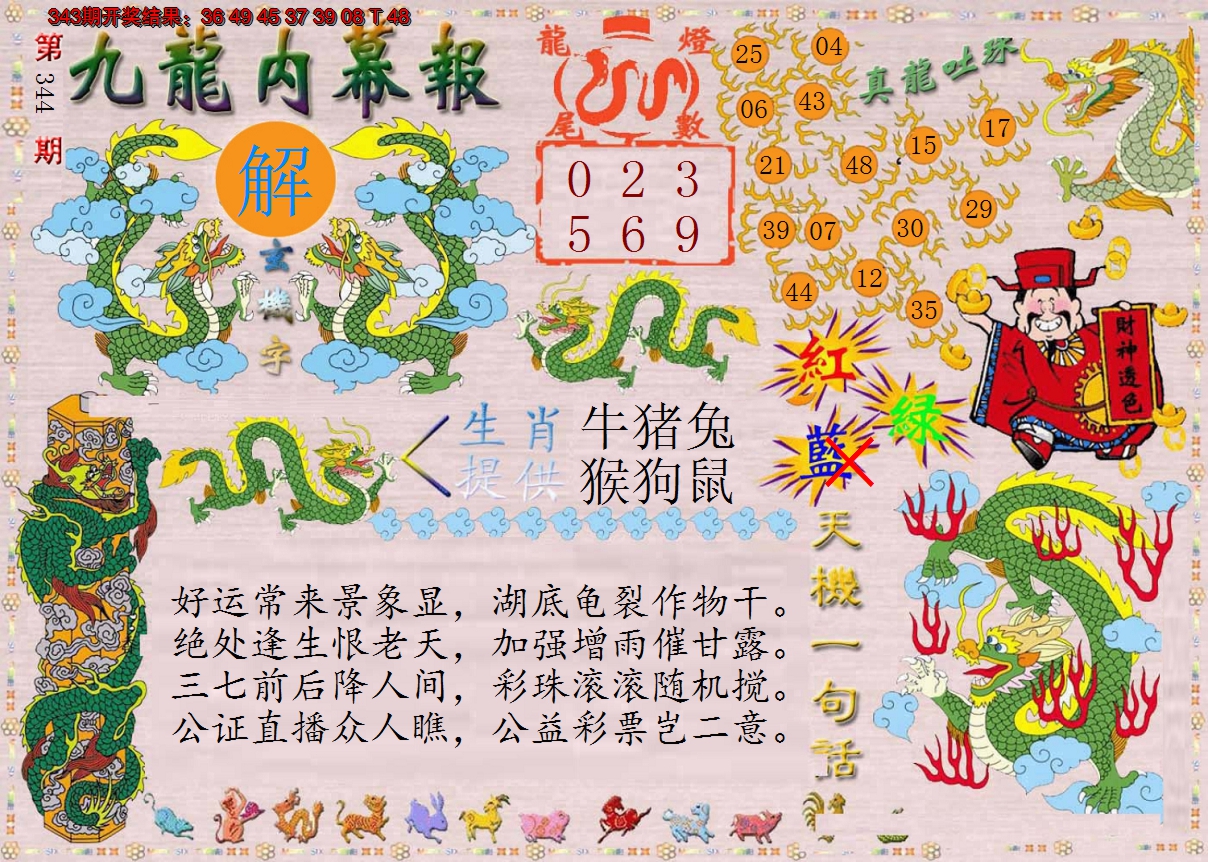 343期开奖结果：36 49 45 37 39 08 T 48
第344期
九龍内幕報
解
玄機字
龍燈
尾數
0 2 3
5 6 9
真龍吐珠
25 04
06 43
15 17
21 48
39 07 30 29
44 12 35
財神透色
紅
綠
藍
生肖 牛猪兔
提供 猴狗鼠
天機一句话
好运常来景象显，湖底龟裂作物干。
绝处逢生恨老天，加强增雨催甘露。
三七前后降人间，彩珠滚滚随机搅。
公证直播众人瞧，公益彩票岂二意。